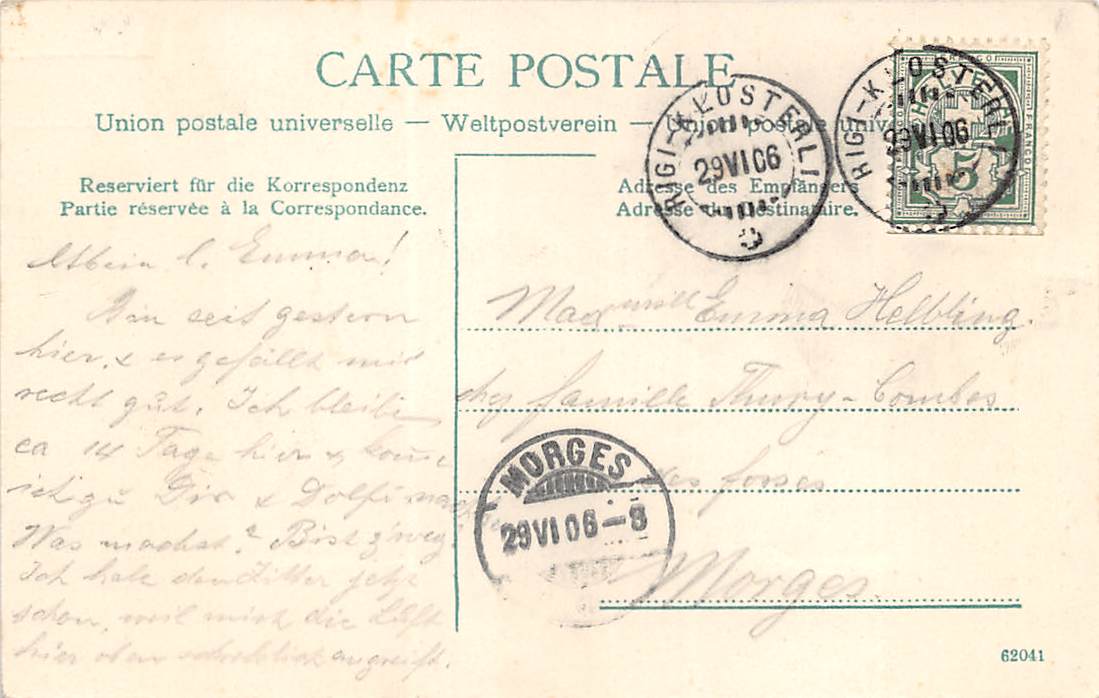 CARTE POSTALE
Union postale universelle — Weltpostverein — Union postale univ
Reserviert für die Korrespondenz
Partie réservée à la Correspondance.
Adresse des Empfängers
Adresse du destinataire.
RIGI-KLÖSTERLI
29 VI 06
RIGI-KLÖSTERLI
29 VI 06
HELVETIA
FRANCO
5
l. Emma!
Bin seit gestern
hier, & es gefällt mir
recht gut. Ich bleibe
ca 14 Tage hier & komme
zu Dir &
Was machst? Bist z'weg?
Ich habe den Zitter jetzt
schon, weil mich die Luft
hier oben schrecklich angreift.
Mad Emma Helbling.
chez famille Thury-Combes
des fossés
Morges.
MORGES
29 VI 06 – 8
62041